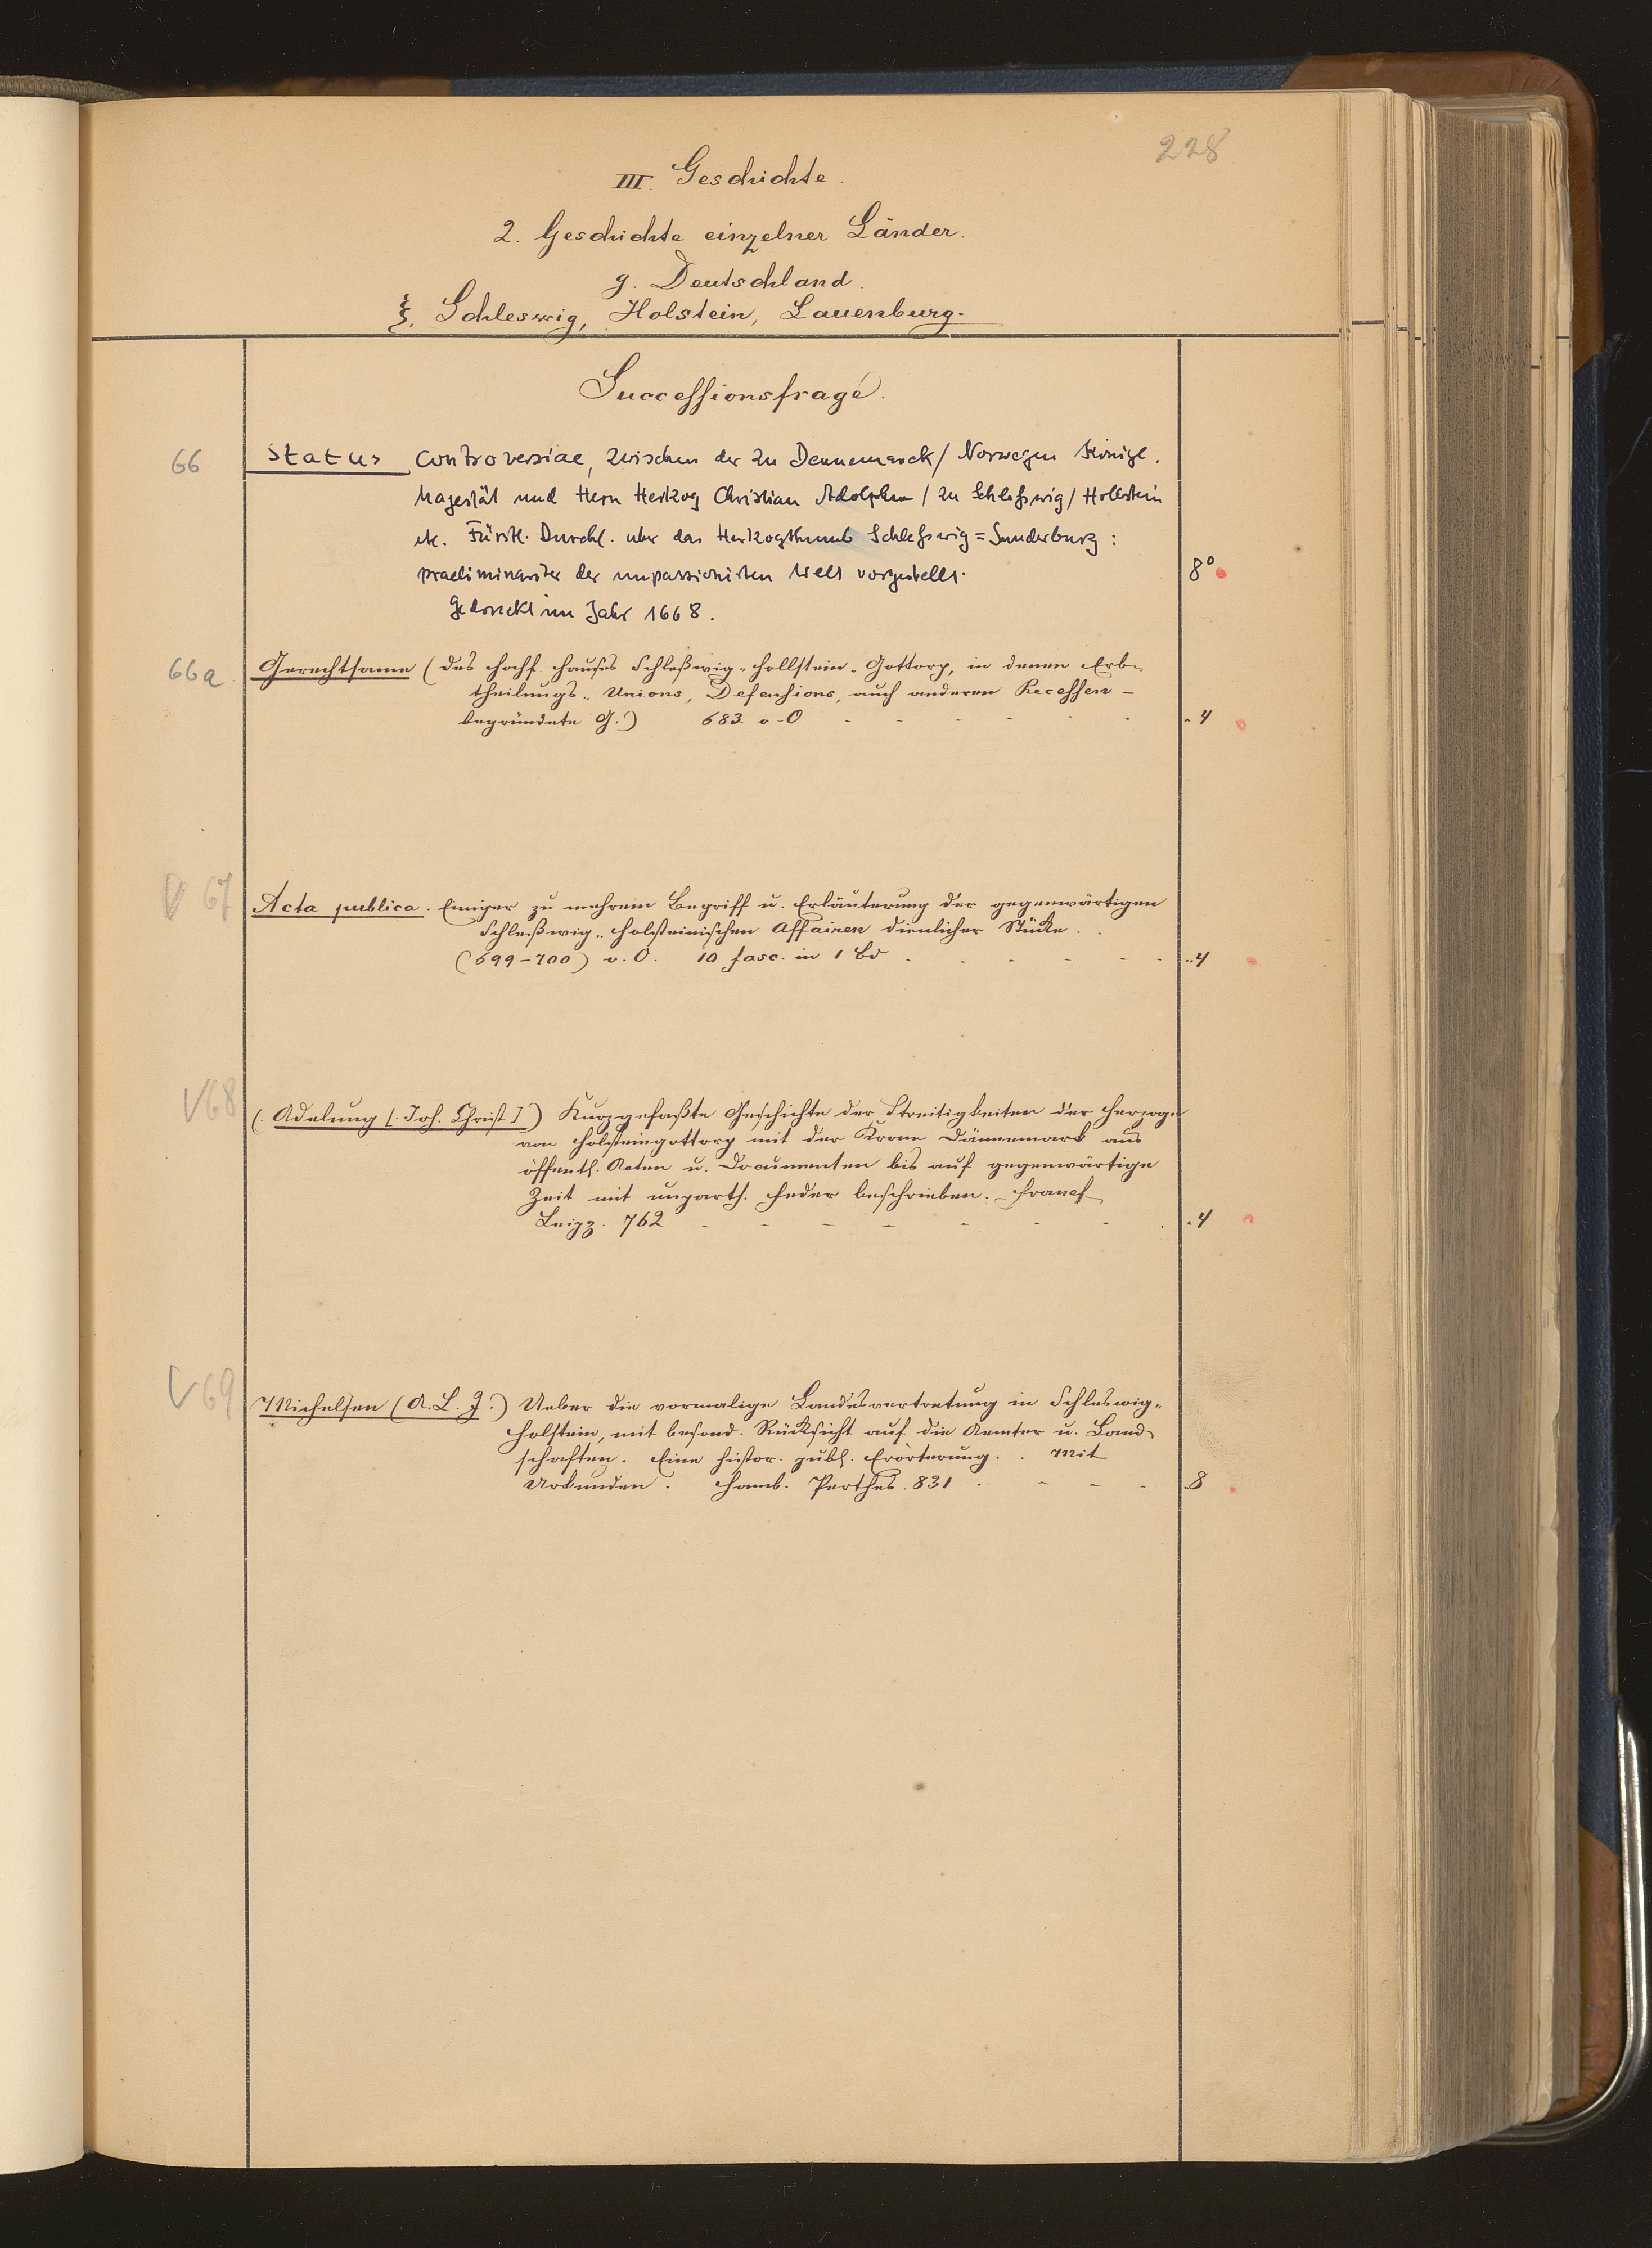 228
III. Geschichte.
2. Geschichte einzelner Länder.
g. Deutschland.
ξ. Schleswig, Holstein, Lauenburg.
Successionsfrage.
66 Status controversiae, zwischen der zu Dennemarck/ Norwegen Königl.
Magestät und Hern Hertzog Christian Adolphen / zu Schleßwig/ Hollstein
etc. Fürstl. Durchl. uber das Hertzogthumb Schleßwig=Sunderburg:
praeliminariter der unpassionirten Welt vorgestellt. 8°
Gedruckt im Jahr 1668.
66a Gerechtsame (des hochf. Hauses Schleßwig-Hollstein-Gottorp, in denen Erb-
theilungs-, Unions, Defensions, auch anderen Recessen -
begründete G.) 683. o-O - - - - - - - 4
V 67 Acta publica. Einiger zu mehrem Begriff u. Erläuterung der gegenwärtigen
Schleßwig-Holsteinischen Affairen dienlicher Stücke.
(699-700) o. O. 10 fasc. in 1 Bd - - - - - - 4
V 68 (Adelung (Joh. Christ.)) Kurzgefaßte Geschichte der Streitigkeiten der Herzoge
von Holsteingottorp mit der Krone Dännemark aus
öffentl. Acten u. Documenten bis auf gegenwärtige
Zeit mit unparth. Feder beschrieben. - Francf
Leipz. 762 - - - - - - - - 4
V 69 Michelsen (A. L. J.) Ueber die vormalige Landesvertretung in Schleswig-
Holstein, mit besond. Rücksicht auf die Aemter u. Land-
schaften. Eine histor. publ. Erörterung. Mit
Urkunden. Hamb. Perthes. 831 - - - - 8